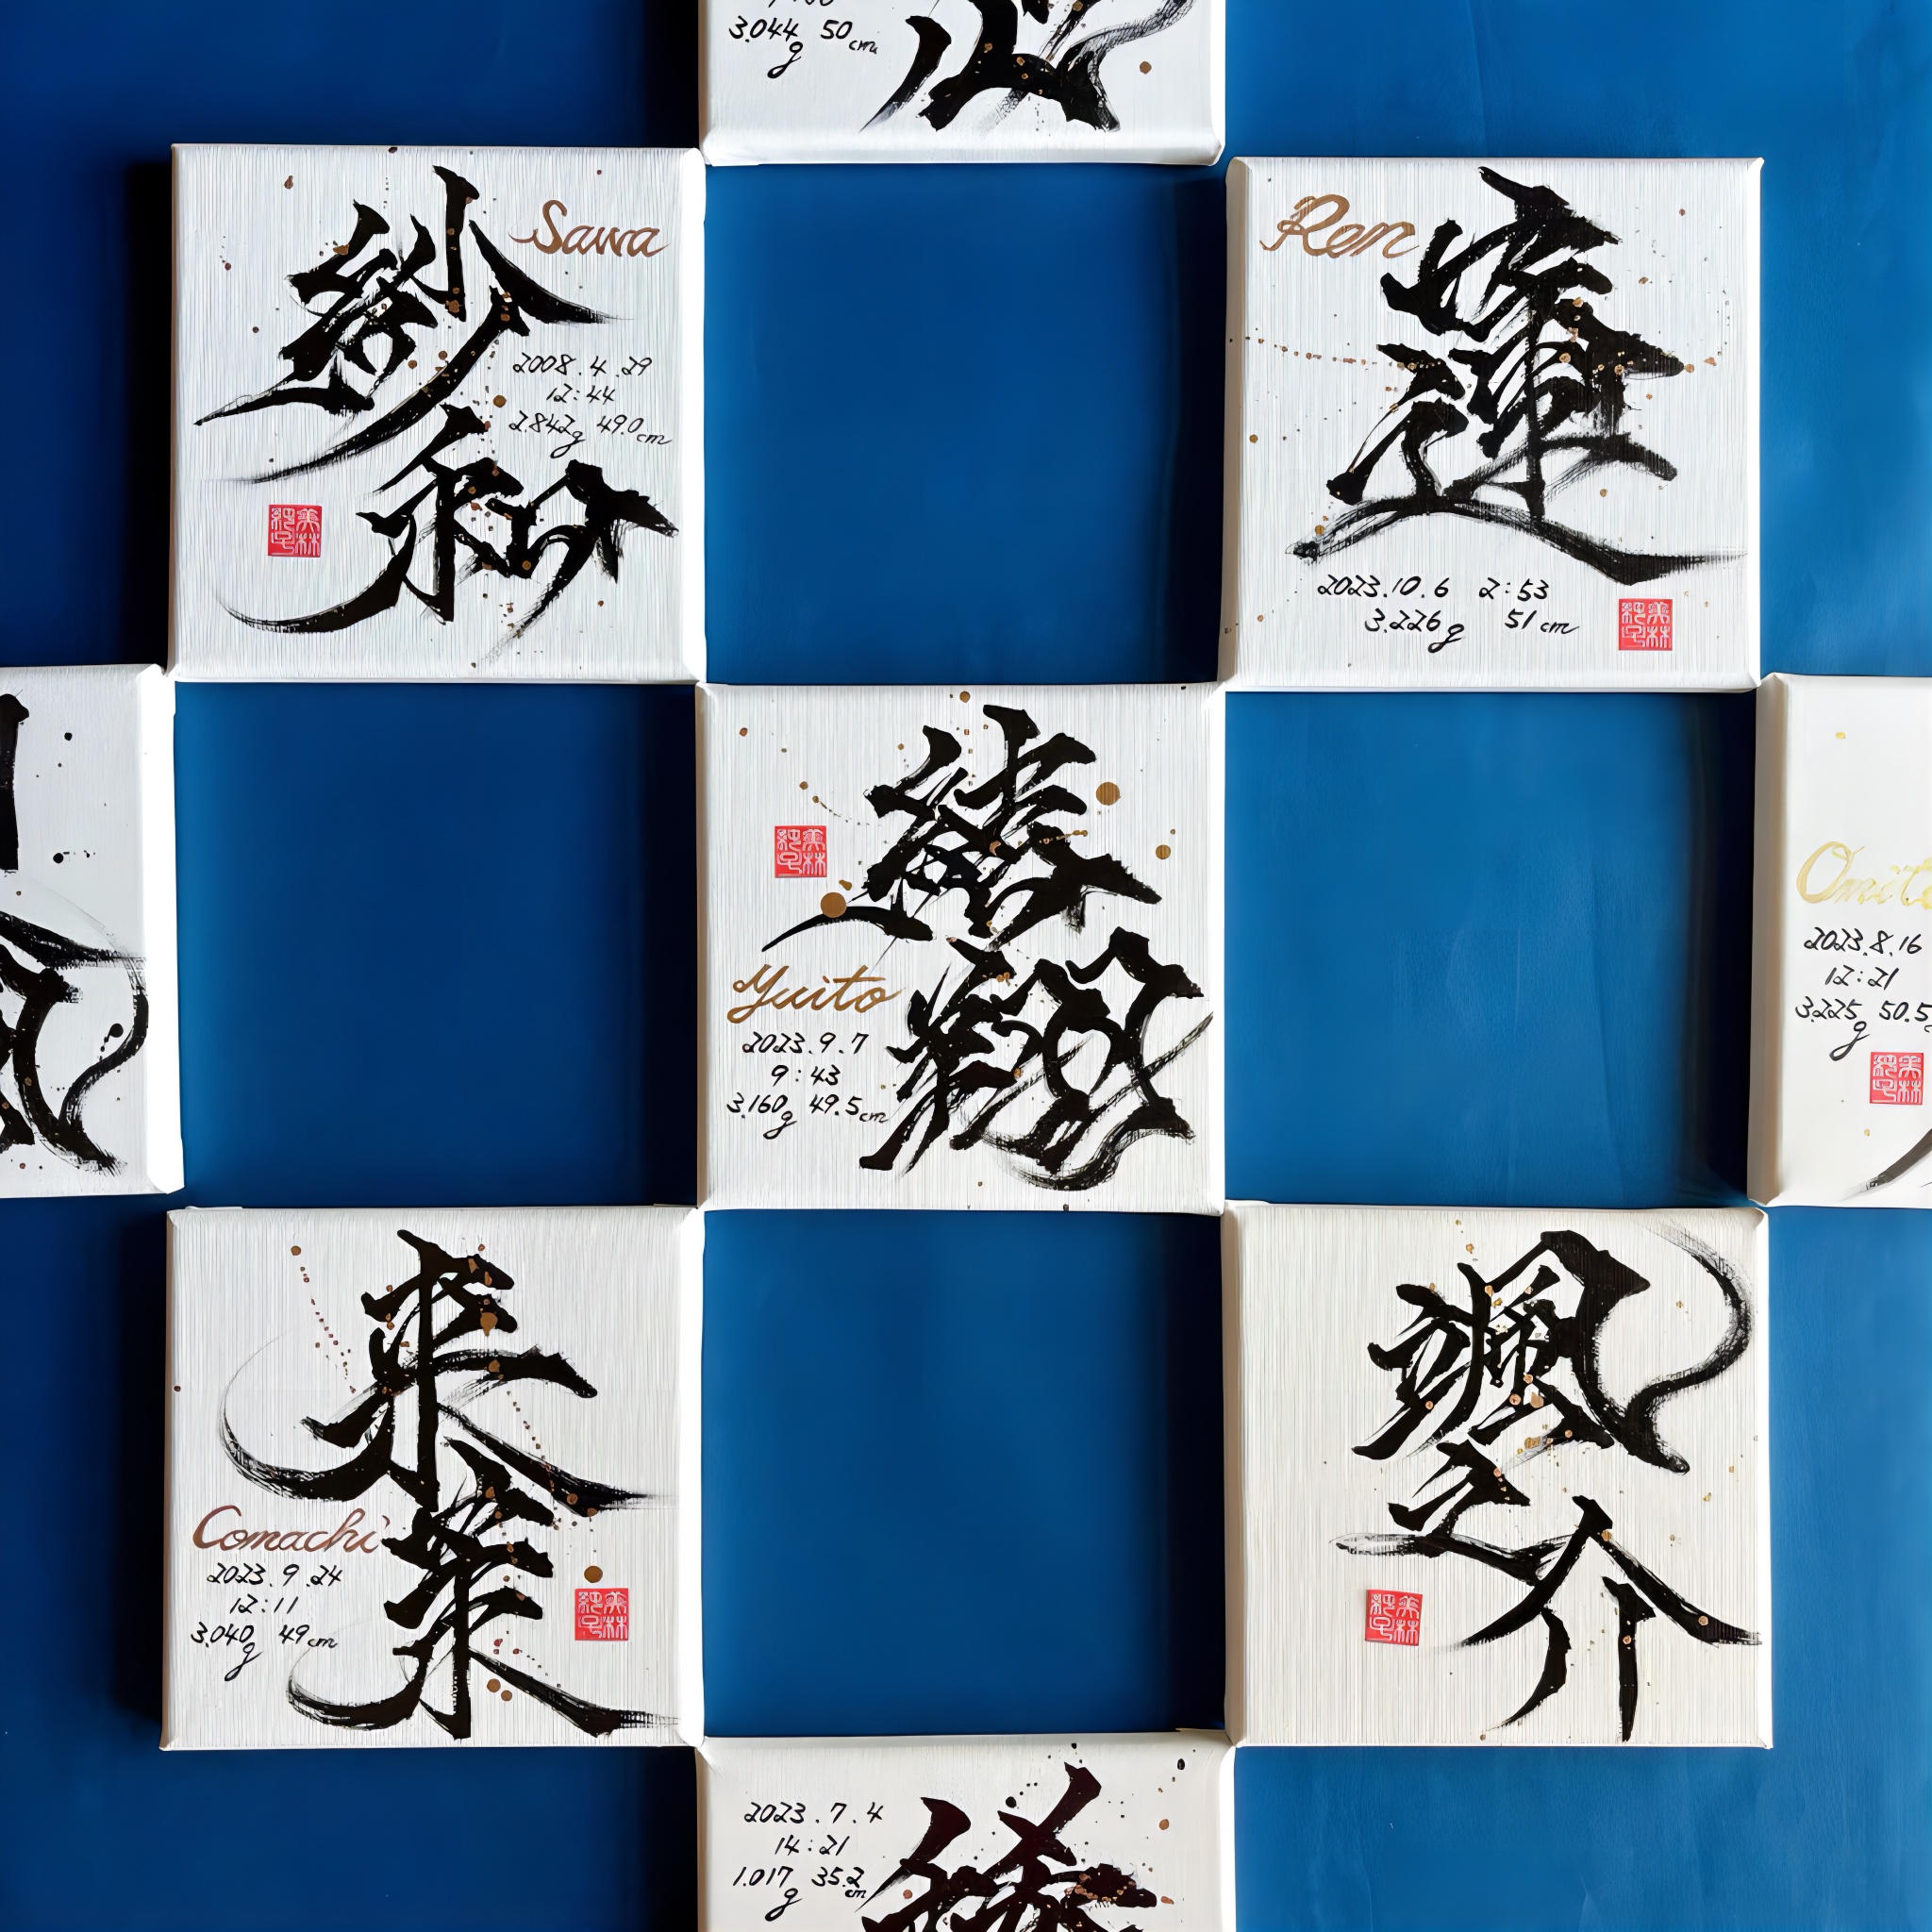 3.044g 50cm
紗和
Sawa
2008.4.29
12:44
2.842g 49.0cm
Ren
蓮
2023.10.6 2:53
3.226g 51cm
結翔
Yuito
2023.9.7
9:43
3.160g 49.5cm
2023.8.16
12:21
3.225g 50.5
来茉
Comachi
2023.9.24
12:11
3.040g 49cm
颯之介
2023.7.4
14:21
1.017g 35.2cm